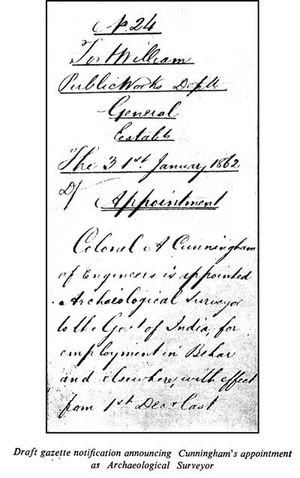 No. 24
Fort William
Public Works Deptt
General
Establt
The 31st January 1862
Appointment
Colonel A Cunningham
of Engineers is appointed
Archaeological Surveyor
to the Govt of India, for
employment in Behar
and elsewhere, with effect
from 1st Decr last
Draft gazette notification announcing Cunningham's appointment
as Archaeological Surveyor